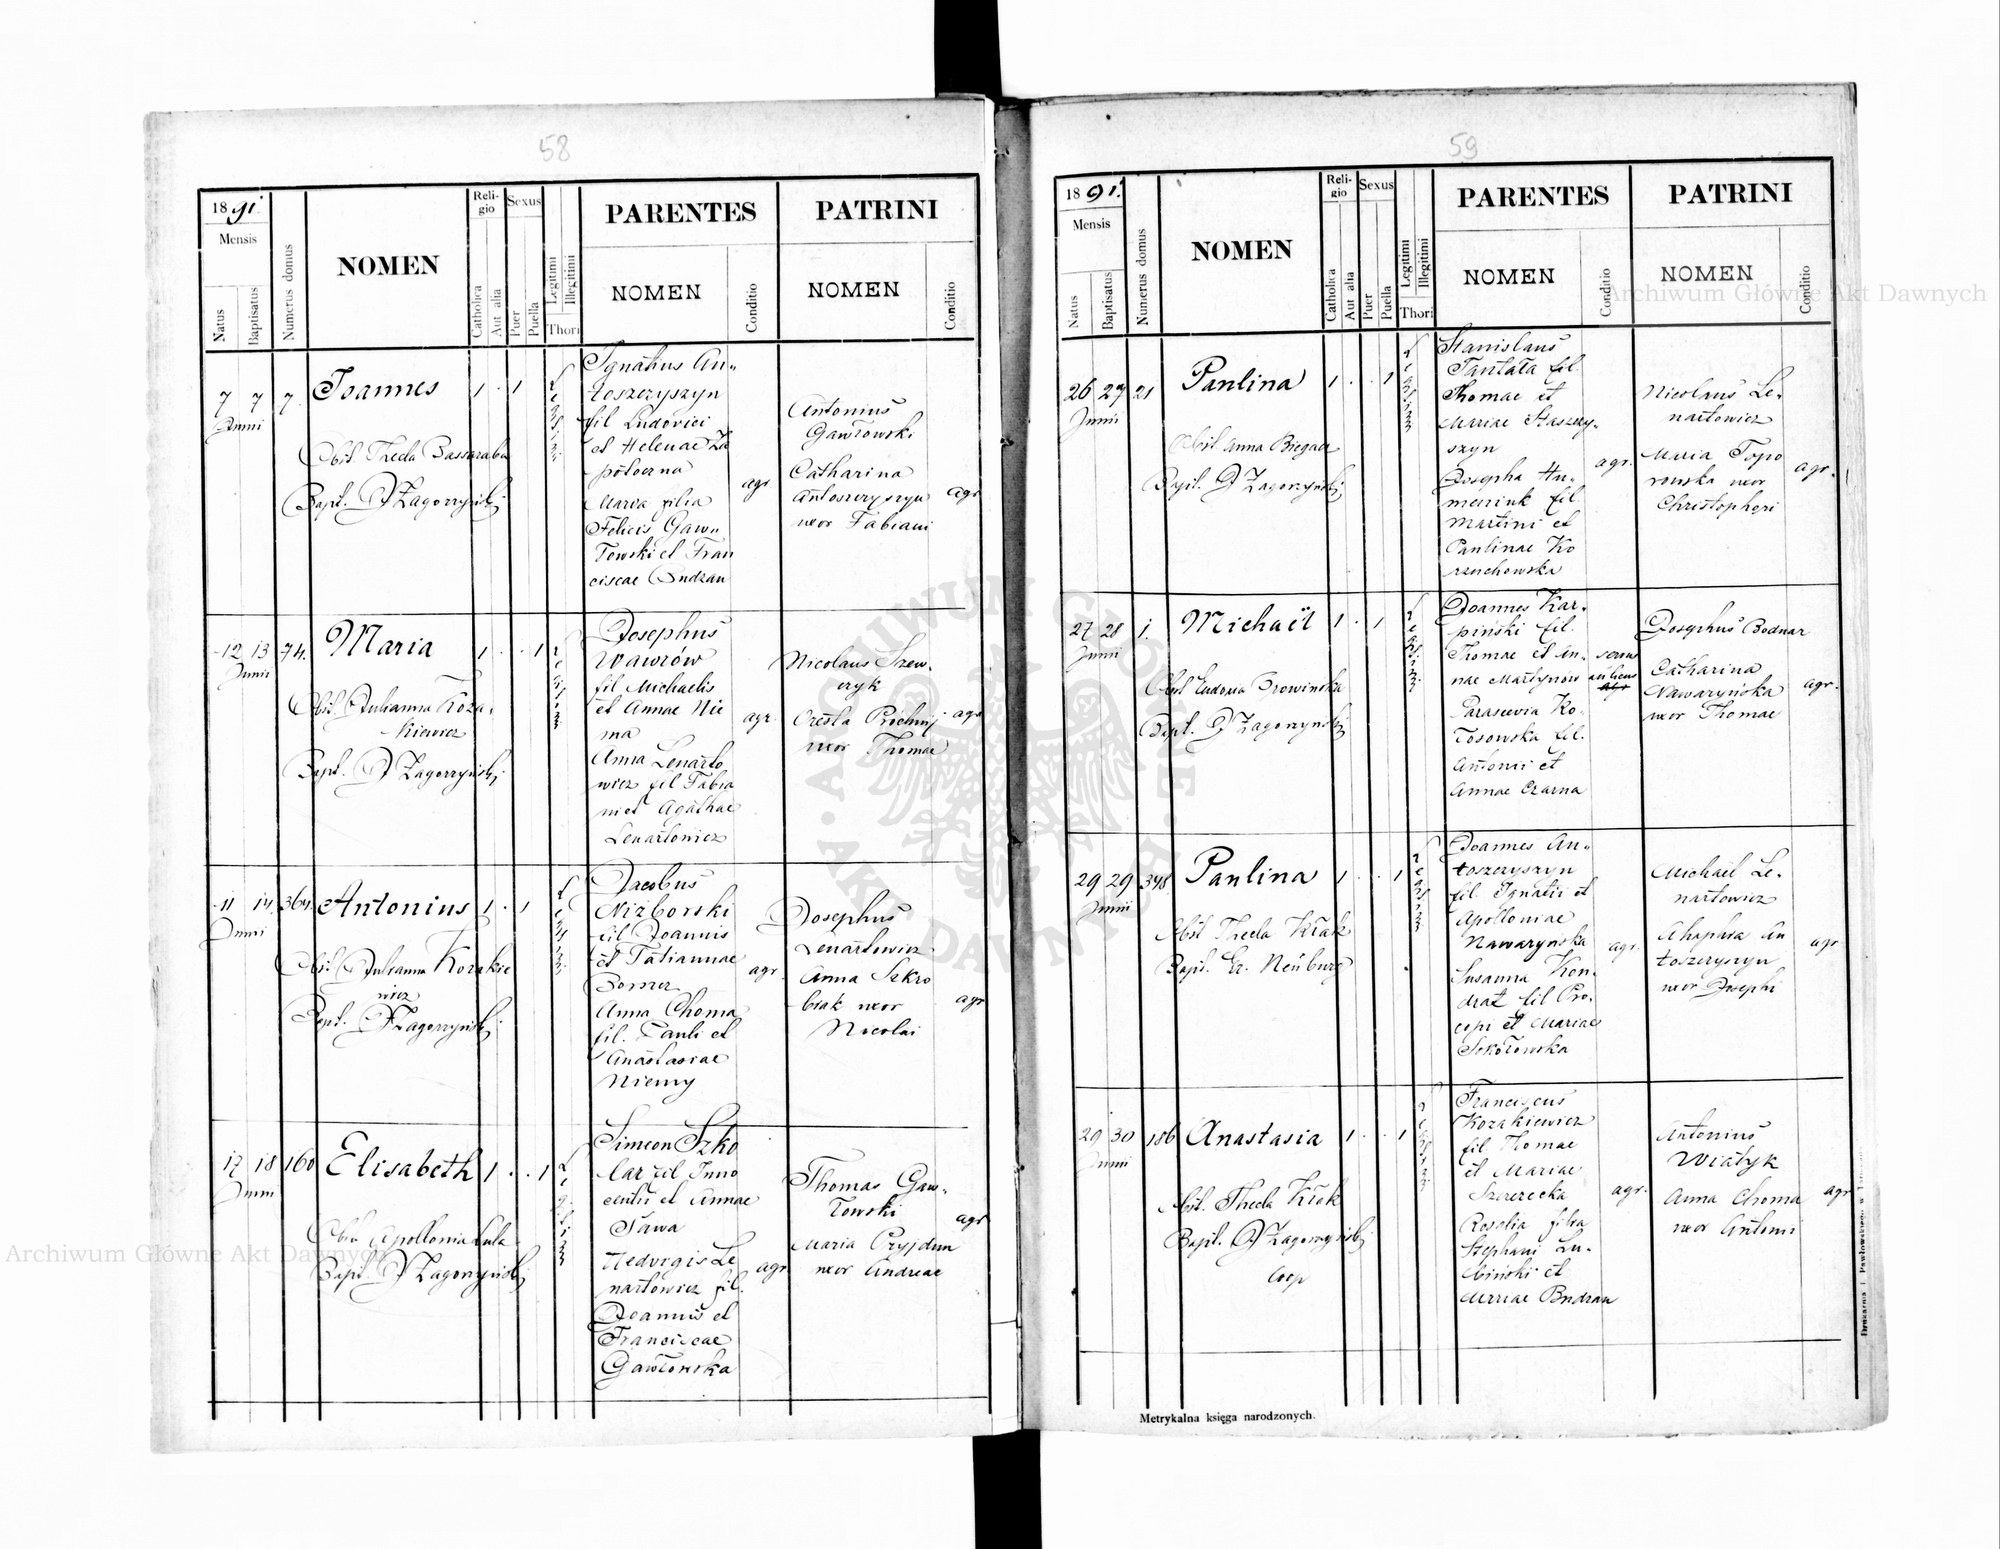 58
1891.
Mensis
Natus
Baptisatus
Numerus domus
NOMEN
Religio
Catholica
Aut alia
Sexus
Puer
Puella
Legitimi
Illegitimi
Thori
PARENTES
NOMEN
Conditio
PATRINI
NOMEN
Conditio
7 7 7
Junii
Joannes
1 . 1
Obst. Thecla Bassaraba
Bapt. J Zagorzyński
Ignatius An-
toszczyszyn
fil Ludovici
et Helenae Za
połoczna
Maria filia
Felicis Gaw-
łowski et Fran
ciscae Budzan
agr
Antonius
Gawłowski
Catharina
Antoszczyszyn
uxor Fabiani
agr
12 13 74.
Junii
Maria
1 . . 1
Obst. Julianna Koza-
kiewicz
Bapt. J Zagorzyński
Josephus
Wawrów
fil Michaelis
et Annae Nie
ma
Anna Lenarto
wicz fil Fabia
ni et Agathae
Lenartowicz
agr.
Nicolaus Szew-
czyk
uxor Thomae
agr
11 14 364.
Junii
Antonius
1 . 1
Obst. Julianna Kozakie
wicz
Bapt. J Zagorzyński
Jacobus
Niżborski
fil Joannis
et Tatiannae
Anna Choma
fil. Pauli et
Anastasiae
Niemy
agr.
Josephus
Lenartowicz
Anna Szkro
biak uxor
Nicolai
agr
17 18 160
Junii
Elisabeth
1 . . 1
Obst. Apollonia Lula
Bapt. J Zagorzyński
Simeon Szko
lar fil Inno
centii et Annae
Sawa
Hedvigis Le
nartowicz fil.
Joannis et
Franciscae
Gawłowska
agr.
Thomas Gaw-
łowski
Maria Przyjdun
uxor Andreae
agr
59
1891.
Mensis
Natus
Baptisatus
Numerus domus
NOMEN
Religio
Catholica
Aut alia
Sexus
Puer
Puella
Legitimi
Illegitimi
Thori
PARENTES
NOMEN
Conditio
PATRINI
NOMEN
Conditio
26 27 21
Junii
Paulina
1 . . 1
Obst Anna Biegan
Bapt. J Zagorzyński
Stanislaus
Tantała fil.
Thomae et
Mariae Staszczy-
szyn
Josepha Hu-
meniuk fil
Martini et
Paulinae Ko
rzuchowska
agr.
Nicolaus Le-
nartowicz
Maria Topo
rowska uxor
Christopheri
agr.
27 28 1.
Junii
Michaël
1 . 1
Obst Eudoxia Browińska
Bapt. J Zagorzyński
Joannes Kar-
piński fil.
Thomae et An-
nae Martynów
Parascevia Ko-
łosowska fil.
Antonii et
Annae Czarna
servus
aulicus
agr
Josephus Bodnar
Catharina
Nawaryńska
uxor Thomae
agr.
29 29 348.
Junii
Paulina
1 . . 1
Obst Thecla Krak
Bapt. Gr. Neüburg
Joannes An-
toszczyszyn
fil. Ignatii et
Apolloniae
Nawaryńska
Susanna Kon-
drat fil Pro-
copi et Mariae
Sokołowska
agr.
Michaël Le-
nartowicz
Ahaphia An
toszczyszyn
uxor Josephi
agr
29 30 186
Junii
Anastasia
1 . . 1
Obst. Thecla Krak
Bapt. J Zagorzyński
Coop
Franciscus
Kozakiewicz
fil Thomae
et Mariae
Szczerecka
Rosalia filia
Stephani Lu-
biński et
Mariae Budzan
agr.
Antonius
Wiatyk
Anna Choma
uxor Antoni
agr
Metrykalna księga narodzonych.
Archiwum Główne Akt Dawnych
Archiwum Główne Akt Dawnych
ARCHIWUM GŁÓWNE
AKT DAWNYCH